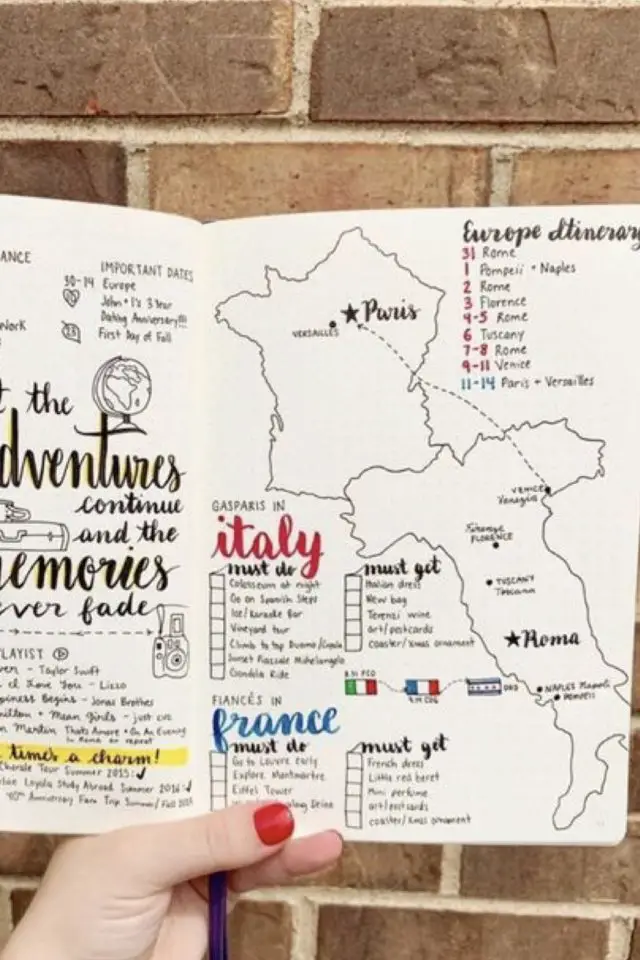 ANCE
IMPORTANT DATES
30-14 Europe
John + I's 3 Year
Dating Anniversary!!!
23 First Day of Fall
Work
t the
dventures
continue
and the
emories
ever fade
PLAYLIST
ver - Taylor Swift
I Love You - Lizzo
ppiness Begins - Jonas Brothers
milton + Mean Girls - just cuz
n Martin Thats Amore + On An Evening
in Roma on repeat
time's a charm!
Chorale Tour Summer 2015:
Loyola Study Abroad Summer 2016:
Anniversary Fam Trip Summer/Fall
Europe Itinerary
31 Rome
1 Pompeii + Naples
2 Rome
3 Florence
4-5 Rome
6 Tuscany
7-8 Rome
9-11 Venice
11-14 Paris + Versailles
Paris
VERSAILLES
VENICE
Venezia
FLORENCE
TUSCANY
Toscana
Roma
NAPLES Napoli
POMPEII
GASPARIS IN
italy
must do
Colosseum at night
Go on Spanish Steps
Ice/Karaoke Bar
Vineyard tour
Climb to top Duomo/Cupola
Sunset Piazzale Michelangelo
Gondola Ride
must get
Italian dress
New bag
Terenzi wine
art/postcards
coaster/Xmas ornament
8.31 FCO
9.14 CDG
ORD
FIANCÉS IN
france
must do
Go to Louvre early
Explore Montmartre
Eiffel Tower
along Seine
must get
French dress
Little red beret
Mini perfume
art/postcards
coaster/Xmas ornament